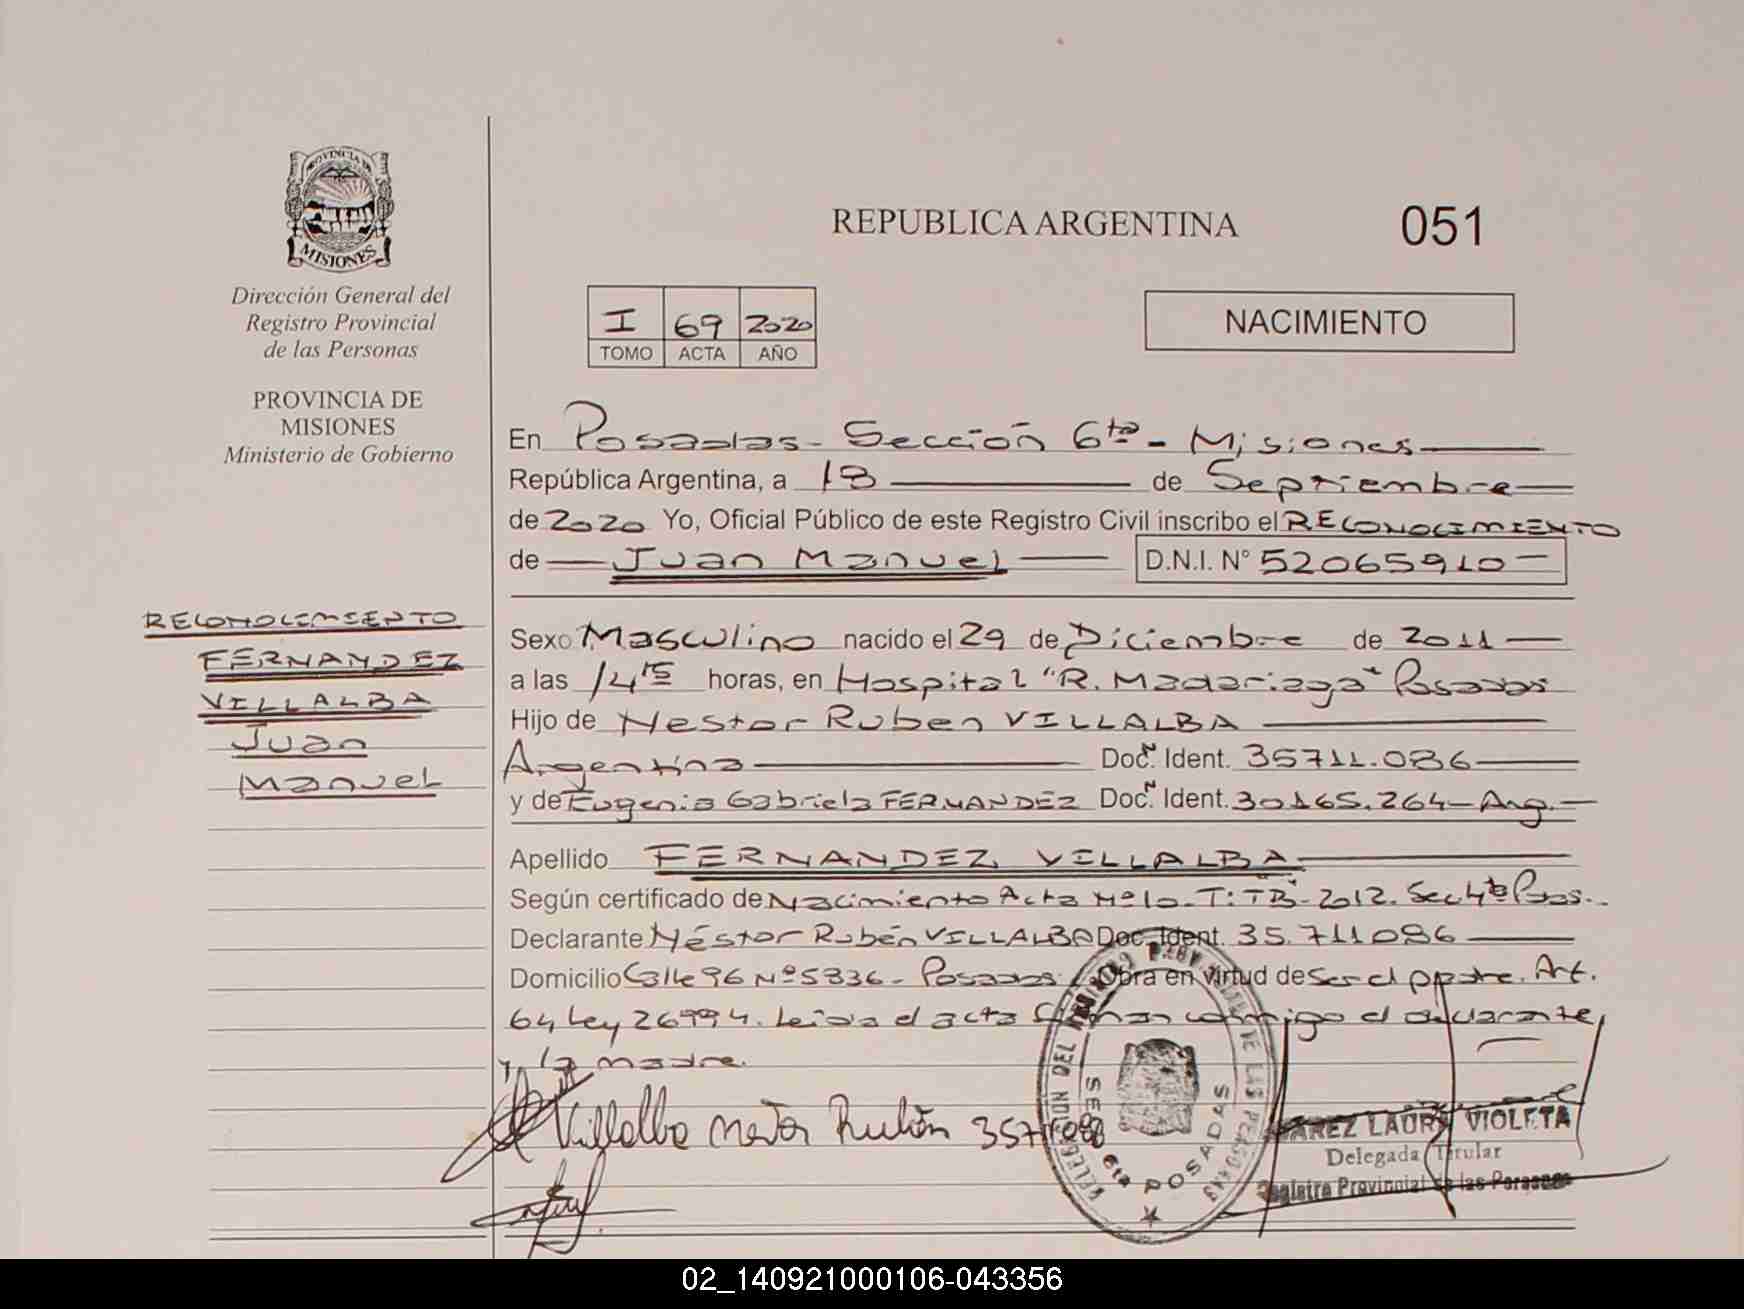 PROVINCIA DE
MISIONES
Dirección General del
Registro Provincial
de las Personas
PROVINCIA DE
MISIONES
Ministerio de Gobierno
RECONOCIMIENTO
FERNANDEZ
VILLALBA
Juan
Manuel
REPUBLICA ARGENTINA 051
I 69 2020
TOMO ACTA AÑO
NACIMIENTO
En Posadas - Sección 6ta - Misiones
República Argentina, a 18 de Septiembre
de 2020 Yo, Oficial Público de este Registro Civil inscribo el RECONOCIMIENTO
de Juan Manuel D.N.I. N° 52065910
Sexo Masculino nacido el 29 de Diciembre de 2011
a las 14 15 horas, en Hospital "R. Madariaga" Posadas
Hijo de Nestor Ruben VILLALBA
Argentina Doc. Ident. 35711.086
y de Eugenia Gabriela FERNANDEZ Doc. Ident. 30165.264 - Arg.
Apellido FERNANDEZ VILLALBA
Según certificado de Nacimiento Acta Nº 10 - T: - 2012. Sec 4ta Pdas.
Declarante Néstor Rubén VILLALBA Doc. Ident. 35.711086
Domicilio Calle 96 Nº 5836 - Posadas. Obra en virtud de ser el padre. Art.
64 Ley 26994. Leida el acta firman conmigo el declarante
y la madre.
Villalba Nestor Rubén
DELEGACION DEL REGISTRO PROVINCIAL DE LAS PERSONAS
SEC 6ta POSADAS
LAURA VIOLETA
Delegada Titular
Registro Provincial de las Personas
02_140921000106-043356